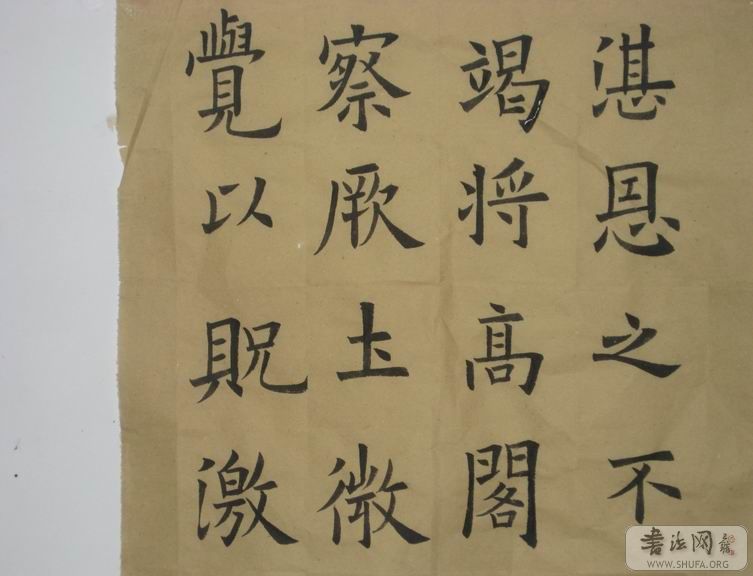 湛恩之不
竭将髙閣
察厥圡微
覺以貺激
书法网
WWW.SHUFA.ORG